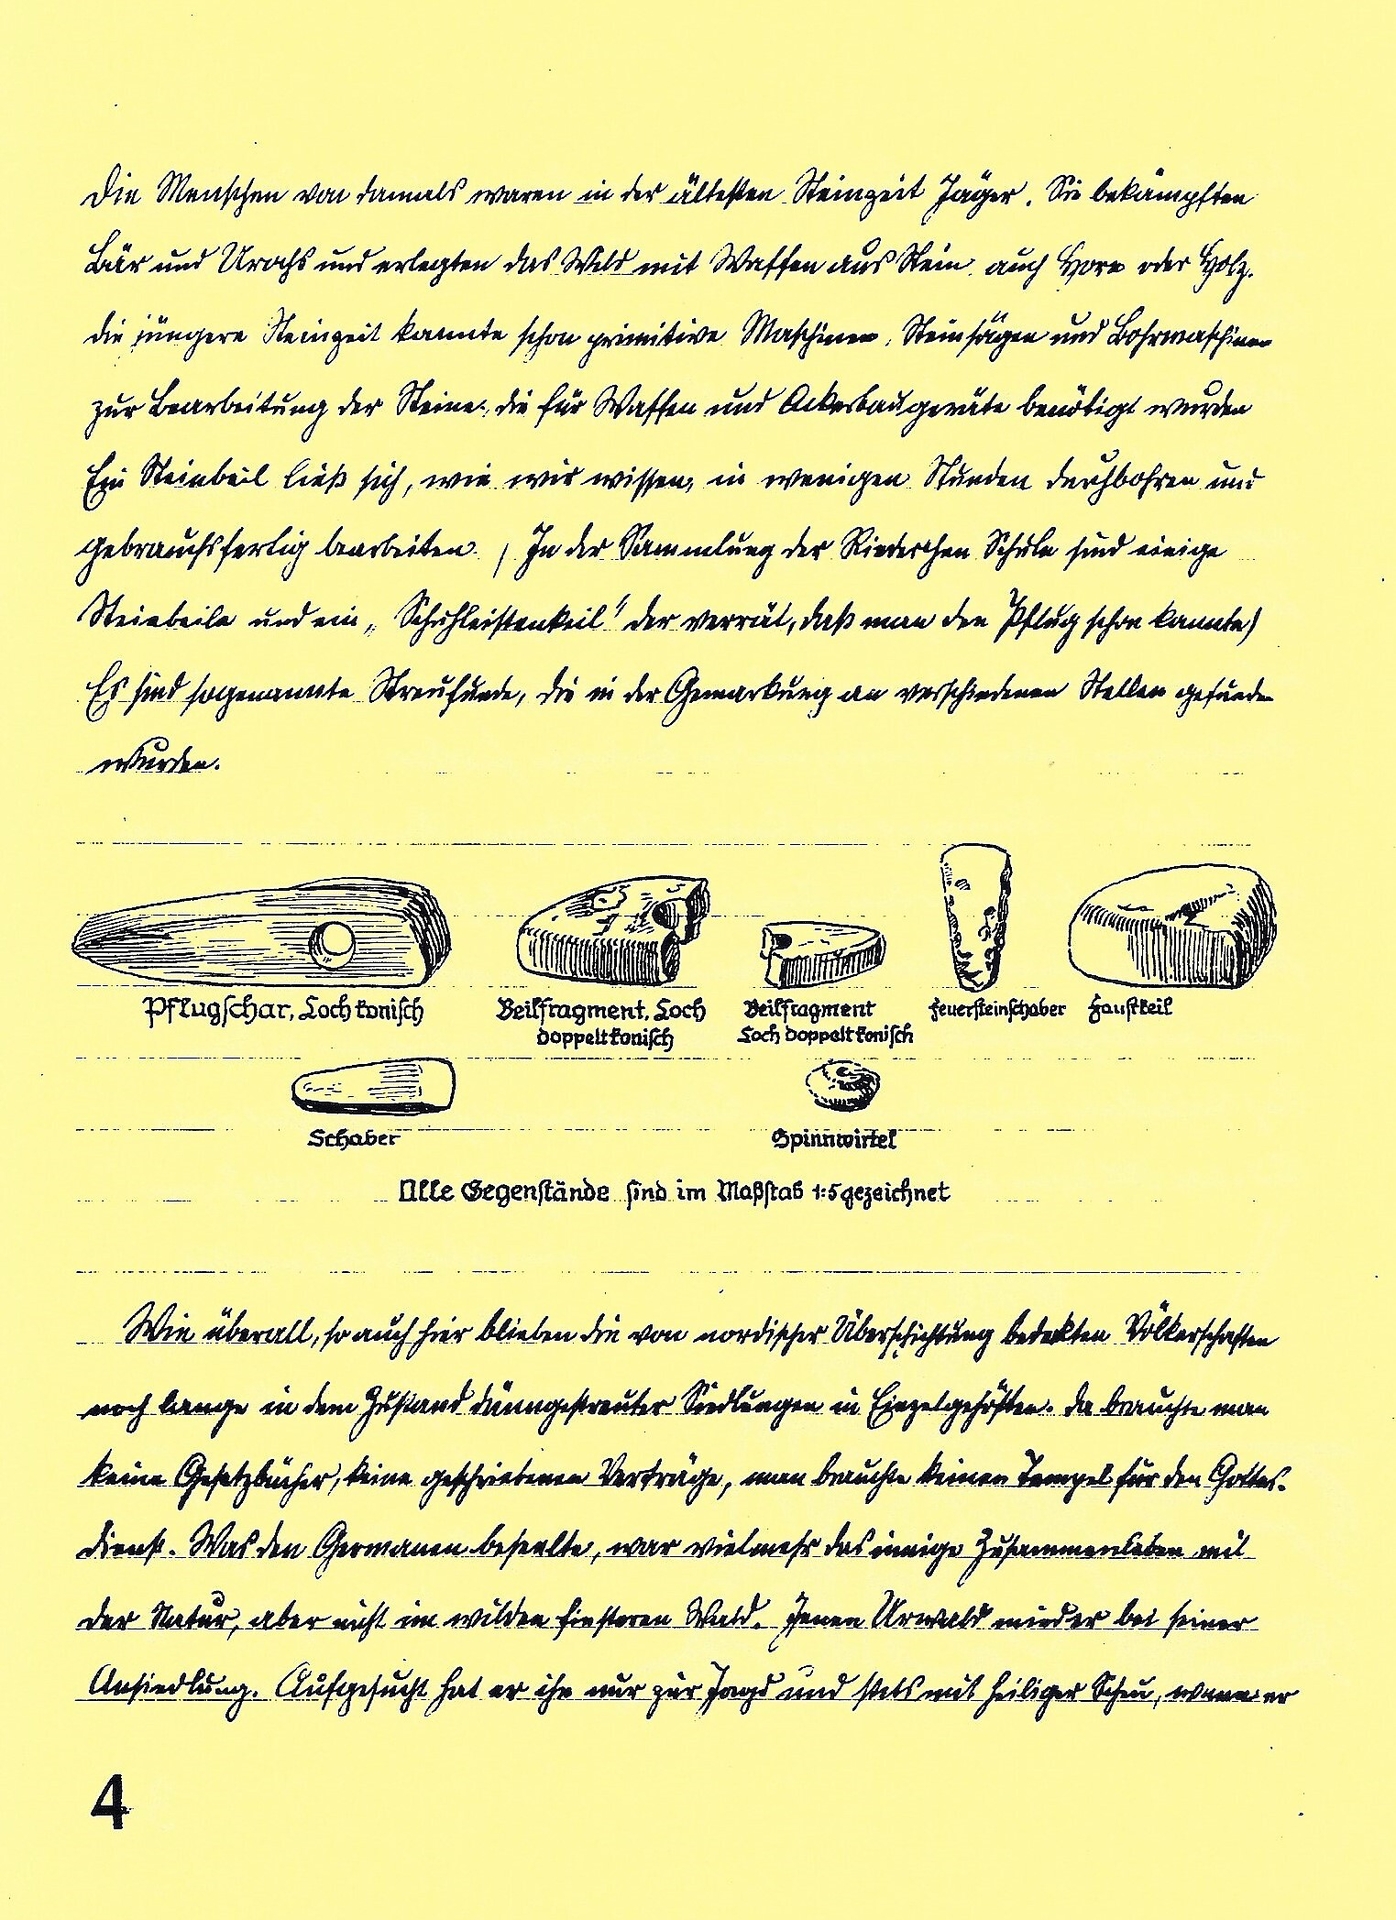 Die Menschen von damals waren in der ältesten Steinzeit Jäger. Sie bekämpften
Bär und Urochs und erlegten das Wild mit Waffen aus Stein auch Horn oder Holz.
die jüngere Steinzeit kannte schon primitive Maschinen, Steinsägen und Bohrmaschinen
zur Bearbeitung der Steine, die für Waffen und Ackerbaugeräte benötigt wurden
Ein Steinbeil ließ sich, wie wir wissen, in wenigen Stunden durchbohren und
gebrauchsfertig bearbeiten. (In der Sammlung der Schule sind einige
Steinbeile und ein „Schuhleistenkeil" der verrät, daß man den Pflug schon kannte)
Es sind sogenannte Streufunde, die in der Gemarkung an verschiedenen Stellen gefunden
wurden.
Pflugschar, Loch konisch
Beilfragment, Loch
doppeltkonisch
Beilfragment
Loch doppeltkonisch
Feuersteinschaber
Faustkeil
Schaber
Spinnwirtel
Alle Gegenstände sind im Maßstab 1:5 gezeichnet
Wie überall, so auch hier blieben die von nordischer Überschichtung bedeckten Völkerschaften
noch lange in dem Zustand dünngestreuter Siedlungen in Einzelgehöften. Da brauchte man
keine Gesetzbücher, keine geschriebenen Verträge, man brauchte keinen Tempel für den Gottes-
dienst. Was den Germanen beseelte, war vielmehr das innige Zusammenleben mit
der Natur, aber nicht im wilden finsteren Wald. Jenen Urwald mied er bei seiner
Ansiedlung. Aufgesucht hat er ihn nur zur Jagd und stets mit heiliger Scheu, wenn er
4